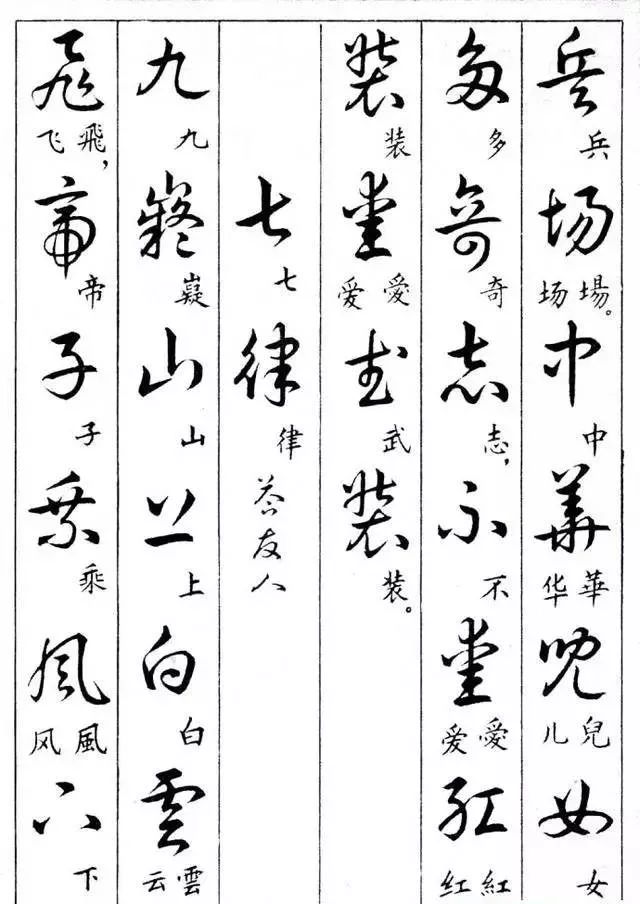 兵 兵 場 场場。 中 中 華 华華 兒 儿兒 女 女
多 多 奇 奇 志 志， 不 不 愛 爱愛 紅 红紅
装 装 愛 爱愛 武 武 装 装。
七 七 律 律 答友人
九 九 嶷 嶷 山 山 上 上 白 白 雲 云雲
飛 飞飛， 帝 帝 子 子 乘 乘 風 风風 下 下